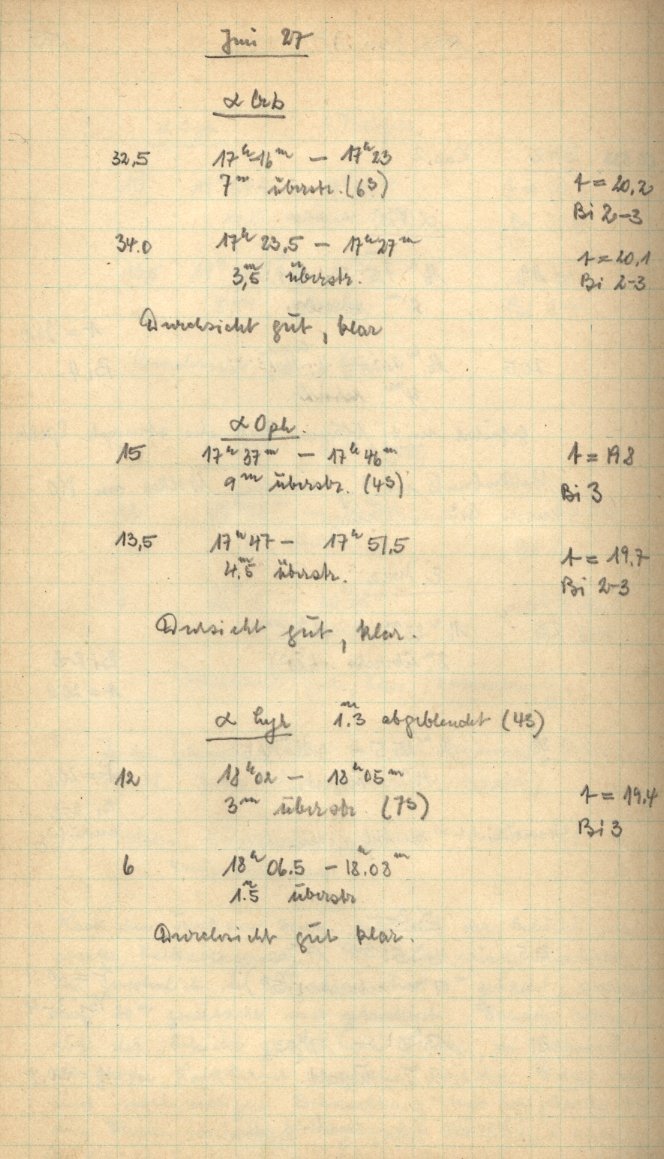 Juni 27
α Crb
32,5 17ʰ16ᵐ – 17ʰ23
7ᵐ überstr. (63)
t = 20,2
Bi 2-3
34.0 17ʰ 23,5 – 17ʰ27ᵐ
3,ᵐ5 überstr.
t = 20,1
Bi 2-3
Durchsicht gut, klar
α Oph.
15 17ʰ 37ᵐ – 17ʰ 46ᵐ
9ᵐ überstr. (43)
t = 19.8
Bi 3
13,5 17ʰ47 – 17ʰ 51.5
4.ᵐ5 überstr.
t = 19.7
Bi 2-3
Dursicht gut, klar.
α Lyr 1.ᵐ3 abgeblendet (43)
12 18ʰ02 – 18ʰ05ᵐ
3ᵐ überstr. (73)
t = 19.4
Bi 3
6 18ʰ 06.5 – 18.ʰ08ᵐ
1.ᵐ5 überstr
Durchsicht gut klar.